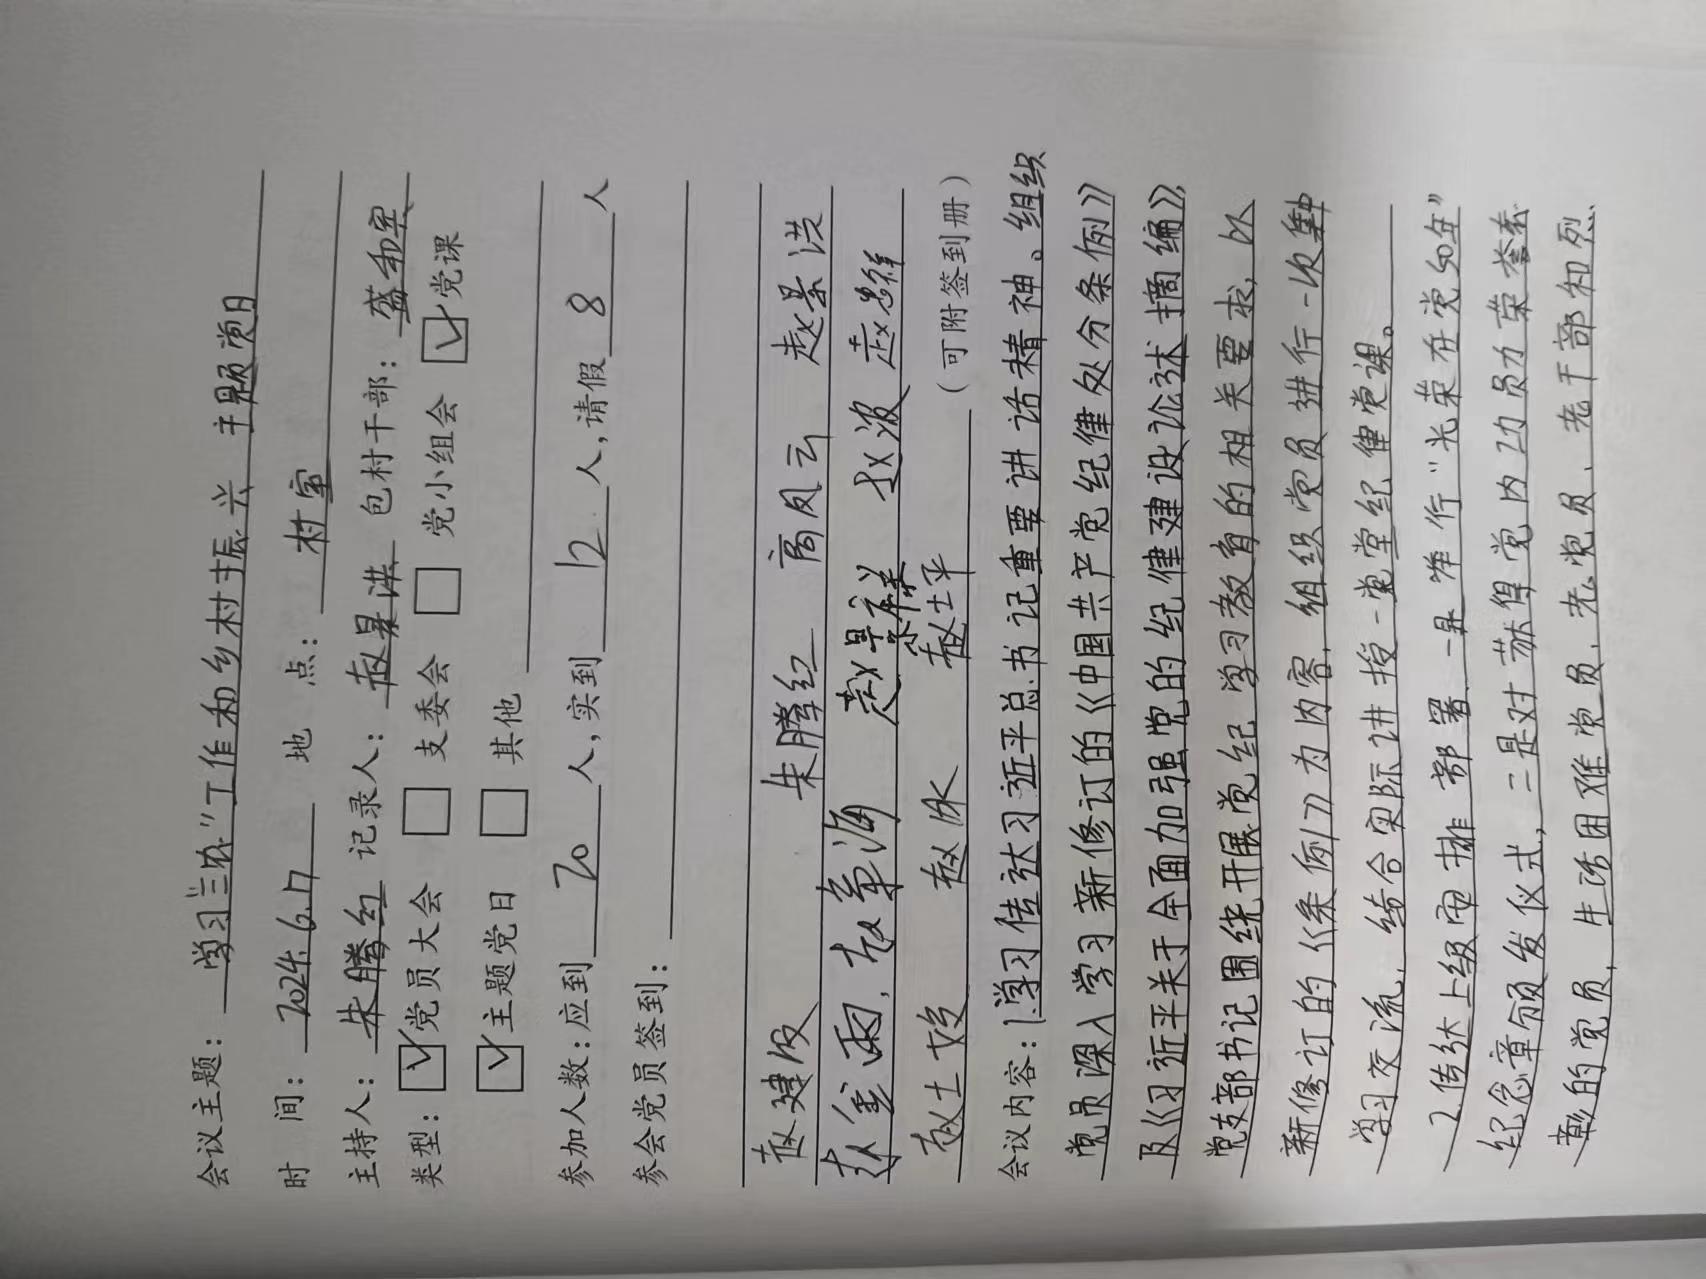 会议主题：学习三农"工作和乡村振兴 主题党日
时 间：2024.6.17 地 点：村室
主持人：朱腾红 记录人：赵景洪 包村干部：
类型：☑党员大会 □支委会 □党小组会 ☑党课
☑主题党日 □其他
参加人数：应到20人，实到12人，请假8人
参会党员签到：
赵建波 朱腾红 高凤云 赵景洪
赵金雨，赵军海 赵景祥 赵波 赵群
赵士婷 赵冰 赵士平 （可附签到册）
会议内容：1.学习传达习近平总书记重要讲话精神。组织
党员深入学习新修订的《中国共产党纪律处分条例》
及《习近平关于全面加强党的纪律建设论述摘编》，
党支部书记围绕开展党纪学习教育的相关要求，以
新修订的《条例》为内容，组织党员进行一次集中
学习交流，结合实际讲授一堂党纪律党课。
2.传达上级安排部署一是举行"光荣在党50年"
纪念章颁发仪式，二是对获得党内功勋荣誉表
彰的党员，生活困难党员、老党员、老干部和烈